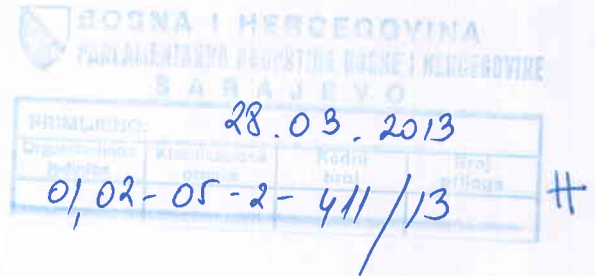 BOSNA I HERCEGOVINA
PARLAMENTARNA SKUPŠTINA BOSNE I HERCEGOVINE
SARAJEVO
PRIMLJENO: 28.03.2013
Organizaciona jedinica Klasifikaciona oznaka Redni broj Broj priloga
01,02-05-2-411/13